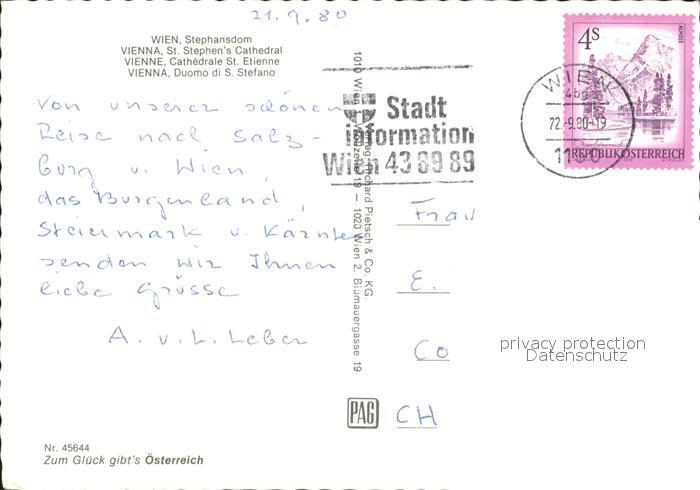 21.9.80
WIEN, Stephansdom
VIENNA, St. Stephen's Cathedral
VIENNE, Cathédrale St. Etienne
VIENNA, Duomo di S. Stefano
Von unserer schönen
Reise nach Salz-
burg u. Wien,
das Burgenland,
Steiermark u. Kärnten
senden wir Ihnen
liebe Grüsse
A. u. L. Leber
Nr. 45644
Zum Glück gibt's Österreich
Richard Pietsch & Co. KG.
1020 Wien 2, Blumauergasse 19
PAG
Stadt
information
Wien 43 89 89
WIEN
22.-9.80-19
1100
4S
ALMSEE
REPUBLIK ÖSTERREICH
Frau
E.
Co
CH
privacy protection
Datenschutz